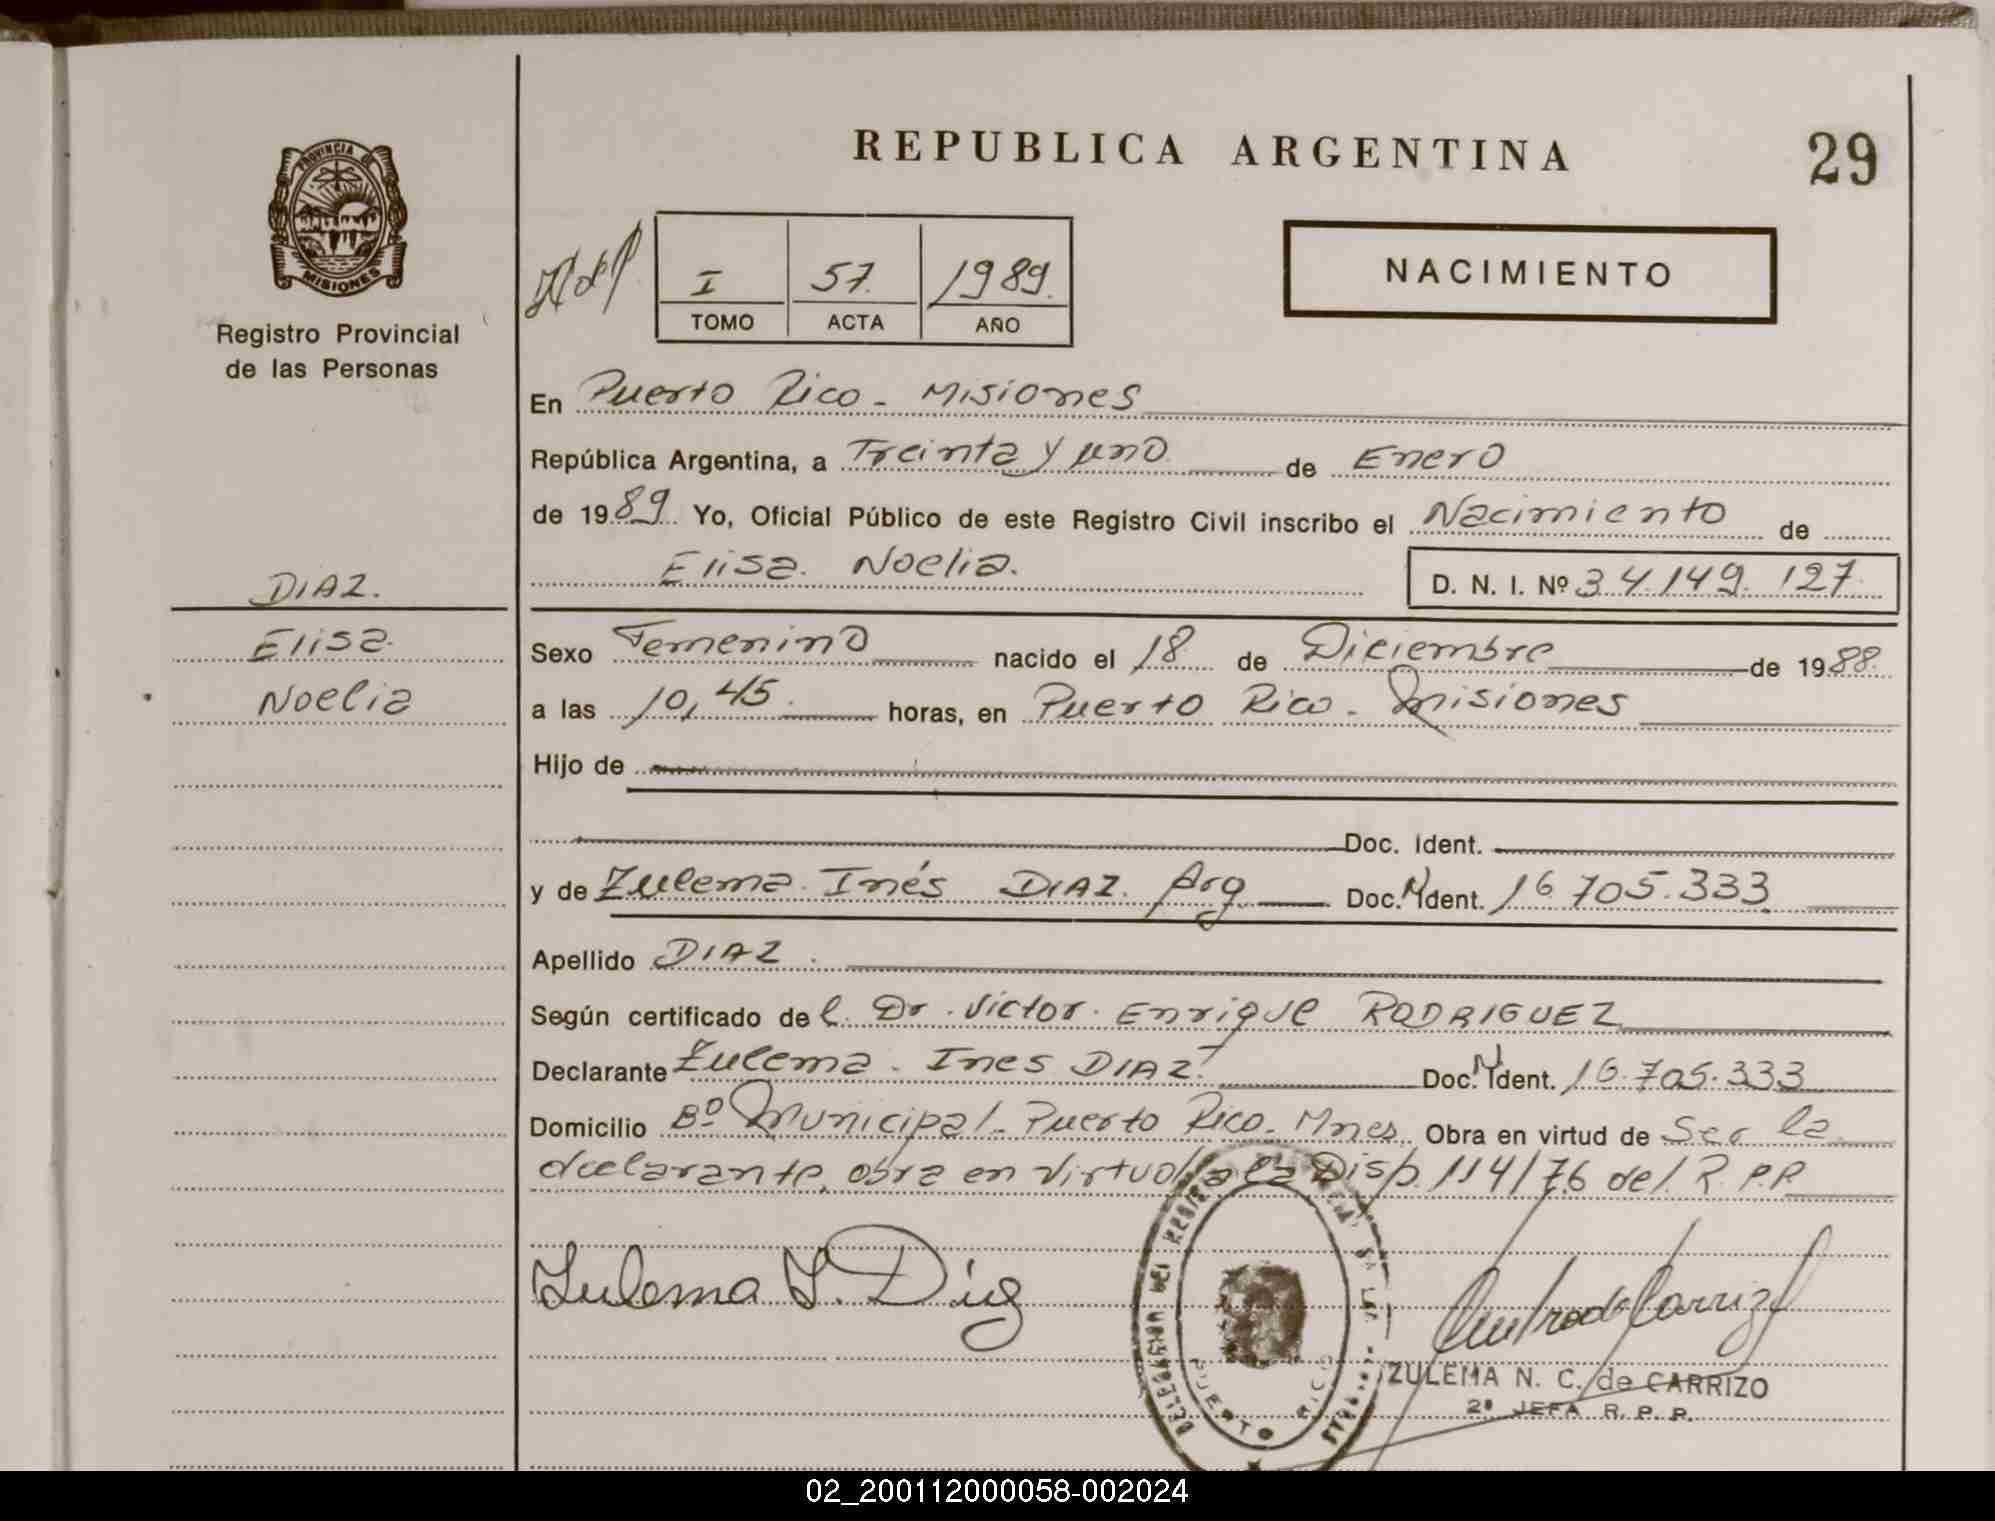 REPUBLICA ARGENTINA
29
PROVINCIA DE
MISIONES
Registro Provincial
de las Personas
I 57. 1989.
TOMO ACTA AÑO
NACIMIENTO
En Puerto Rico - Misiones
República Argentina, a Treinta y uno de Enero
de 1989. Yo, Oficial Público de este Registro Civil inscribo el Nacimiento de
Elisa. Noelia.
D. N. I. Nº 34.149.127.
DIAZ.
Elisa.
Noelia
Sexo Femenino nacido el 18 de Diciembre de 1988.
a las 10,45. horas, en Puerto Rico - Misiones
Hijo de
Doc. Ident.
y de Zulema. Inés DIAZ. Arg. Doc. Ident. 16.705.333
Apellido DIAZ.
Según certificado de l. Dr. Victor. Enrique RODRIGUEZ
Declarante Zulema. Ines DIAZ. Doc. Ident. 16.705.333
Domicilio Bº Municipal - Puerto Rico - Mnes. Obra en virtud de Ser la
declarante, obra en virtud a la Disp. 114/76 del R.P.P.
Zulema I. Diaz
PUERTO RICO
ZULEMA N. C. de CARRIZO
2ª JEFA R. P. P.
02_200112000058-002024